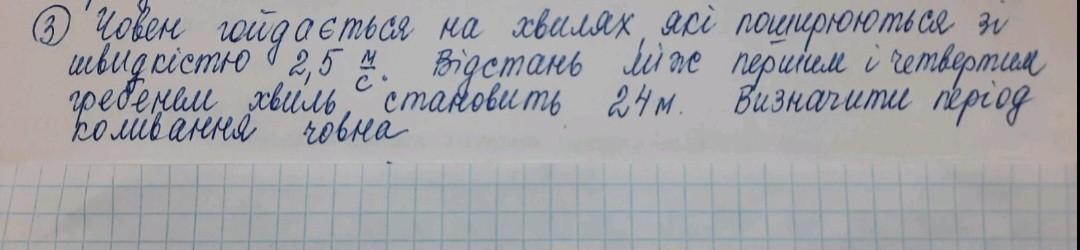 ③ Човен гойдається на хвилях, які поширюються зі
швидкістю 2,5 м/с. Відстань між першим і четвертим
гребенем хвиль становить 24 м. Визначити період
коливання човна